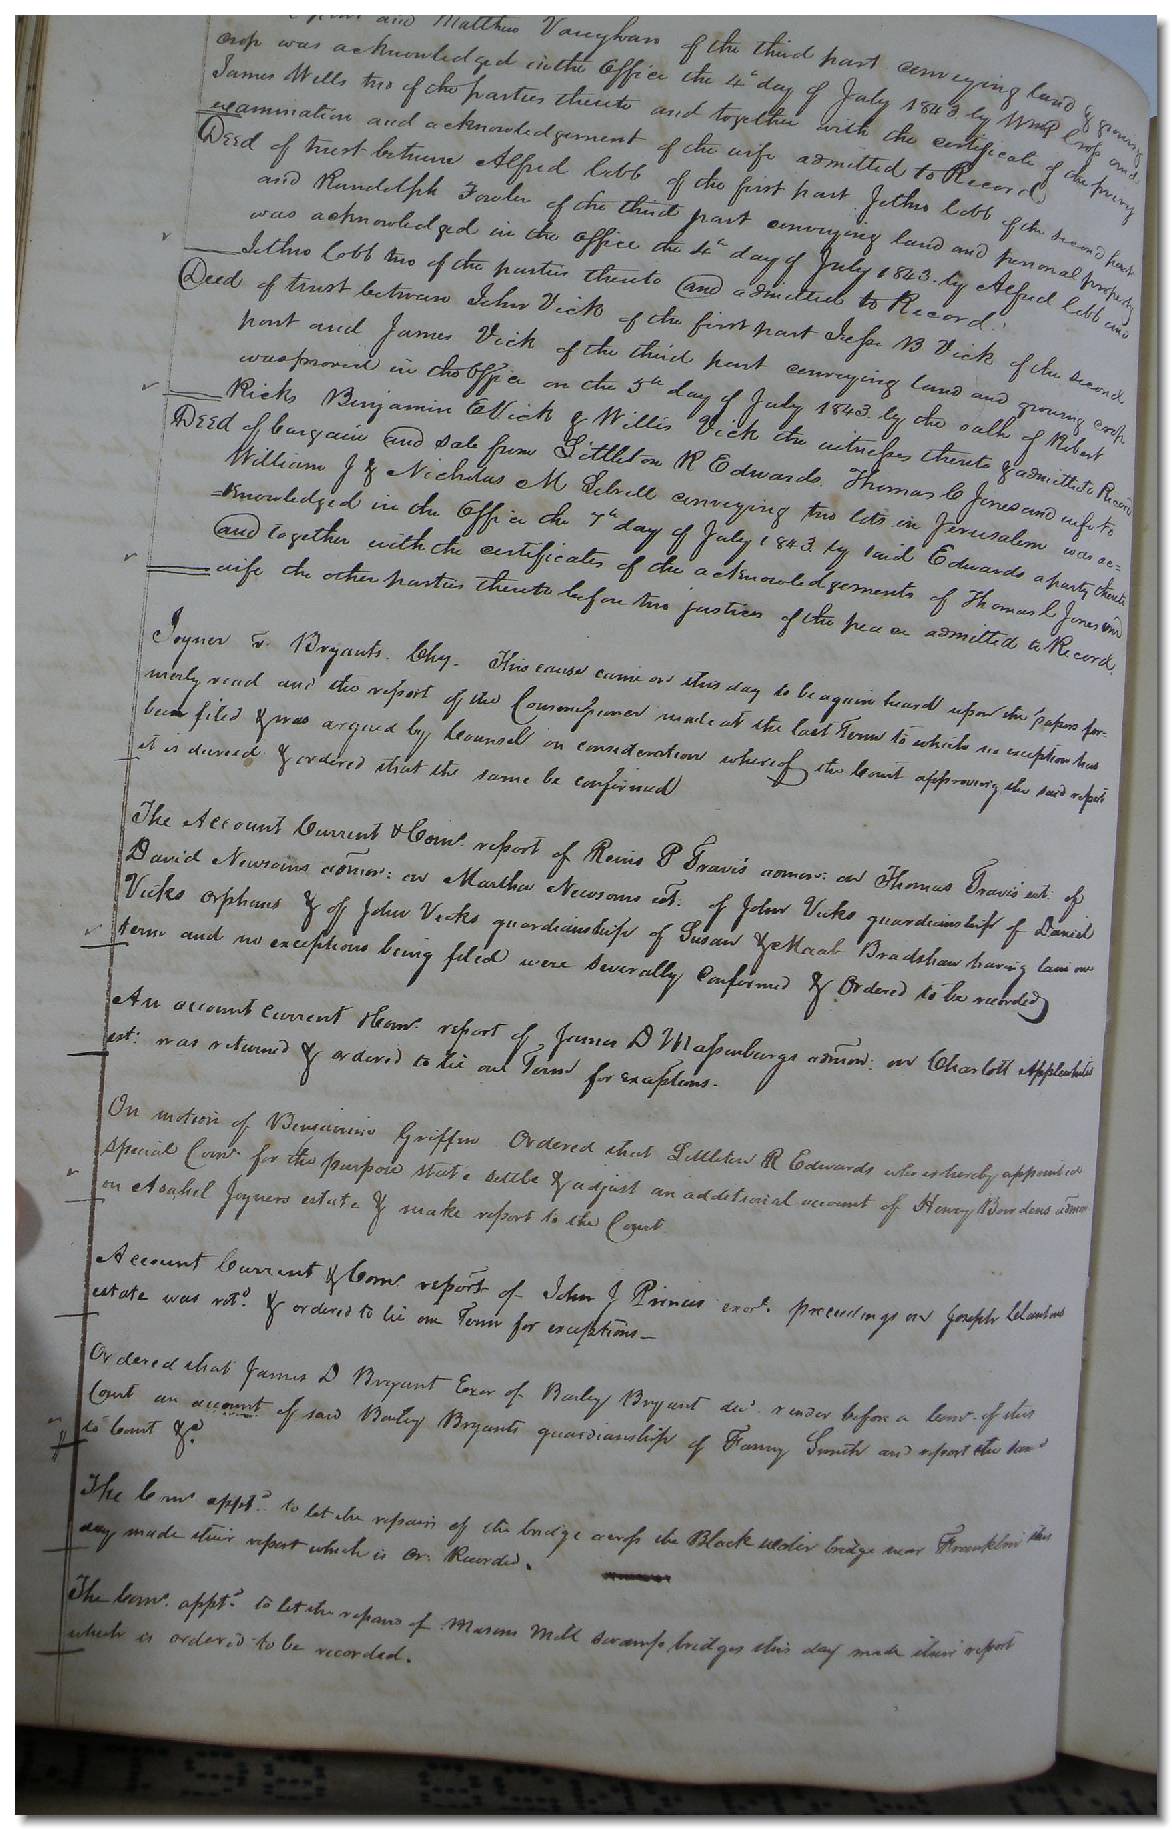 and Matthew Vaughan of the third part conveying land & growing
crop was acknowledged in the Office the 4th day of July 1843. by Wm and
James Wills two of the parties thereto and together with the certificate of the privy
examination and acknowledgement of the wife admitted to Record
Deed of trust between Alfred Cobb of the first part Jethro Cobb of the second part
and Randolph Fowler of the third part conveying land and personal property
was acknowledged in the Office the 4th day of July 1843. by Alfred Cobb and
Jethro Cobb two of the parties thereto and admitted to Record.
Deed of trust between John Vick of the first part Jesse B Vick of the second
part and James Vick of the third part conveying land and growing crop
was proved in the Office on the 5th day of July 1843 by the oath of Robert
Ricks Benjamin E Vick & Willis Vick the witnesses thereto & admitted to Record
Deed of bargain and sale from Littleton R Edwards, Thomas C Jones and wife to
William J & Nicholas M Sebrell conveying two lots in Jerusalem was ac=
=knowledged in the Office the 7th day of July 1843. by said Edwards a party thereto
and together with the certificates of the acknowledgements of Thomas C Jones and
wife the other parties thereto before two justices of the peace admitted to Record.
Joyner v. Bryants. Chy. This cause came on this day to be again heard upon the papers for=
merly read and the report of the Commissioner made at the last Term to which no exception has
been filed & was argued by Counsel on consideration whereof the Court approving the said report
it is decreed & ordered that the same be confirmed
The Account Current & Comr. report of Rewis P Travis admor: on Thomas Travis est: of
David Newsoms admor: on Martha Newsoms est: of John Vicks guardianship of Daniel
Vicks orphans & of John Vicks guardianship of Susan & Bradshaw having lain one
term and no exceptions being filed were severally Confirmed & Ordered to be recorded
An account current & Comr. report of James D Massenburgs admor: on Charlott Applewhites
est: was returned & ordered to lie one Term for exceptions.
On motion of Benjamin Griffin Ordered that Littleton R Edwards who is hereby appointed
special Comr. for the purpose state settle & adjust an additional account of Henry Bowdens admor
on Asahel Joyners estate & make report to the Court.
Account Current & Comr. report of John J Princes exor. proceedings on Joseph Clautons
estate was retd. & ordered to lie one Term for exceptions—
Ordered that James D Bryant Exor of Bailey Bryant decd. render before a Comr. of this
Court an account of said Bailey Bryants guardianship of Fanny Smith and report the same
to Court &c.
The Comr. apptd. to let the repairs of the bridge across the Black water bridge near Franklin this
day made their report which is Or. Recorded.
The Comr. apptd. to let the repairs of Mill Swamp bridges this day made their report
which is ordered to be recorded.